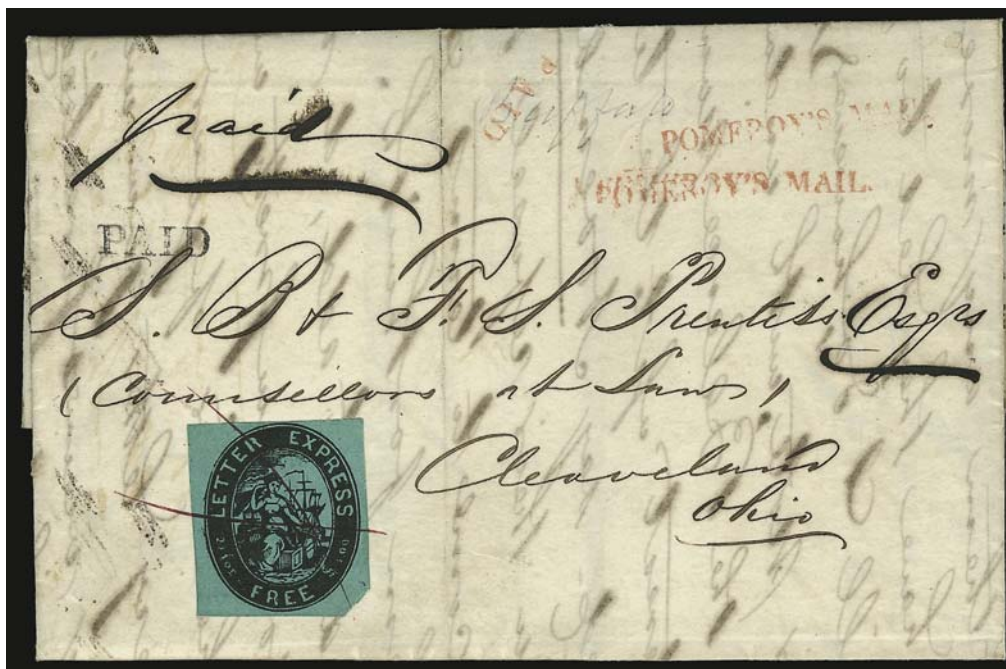 paid
PAID
POMEROY'S MAIL.
POMEROY'S MAIL.
PAID
S. B & F. S. Prentiss Esqrs
(Counsellors at Law)
Cleaveland
Ohio
LETTER EXPRESS
FREE